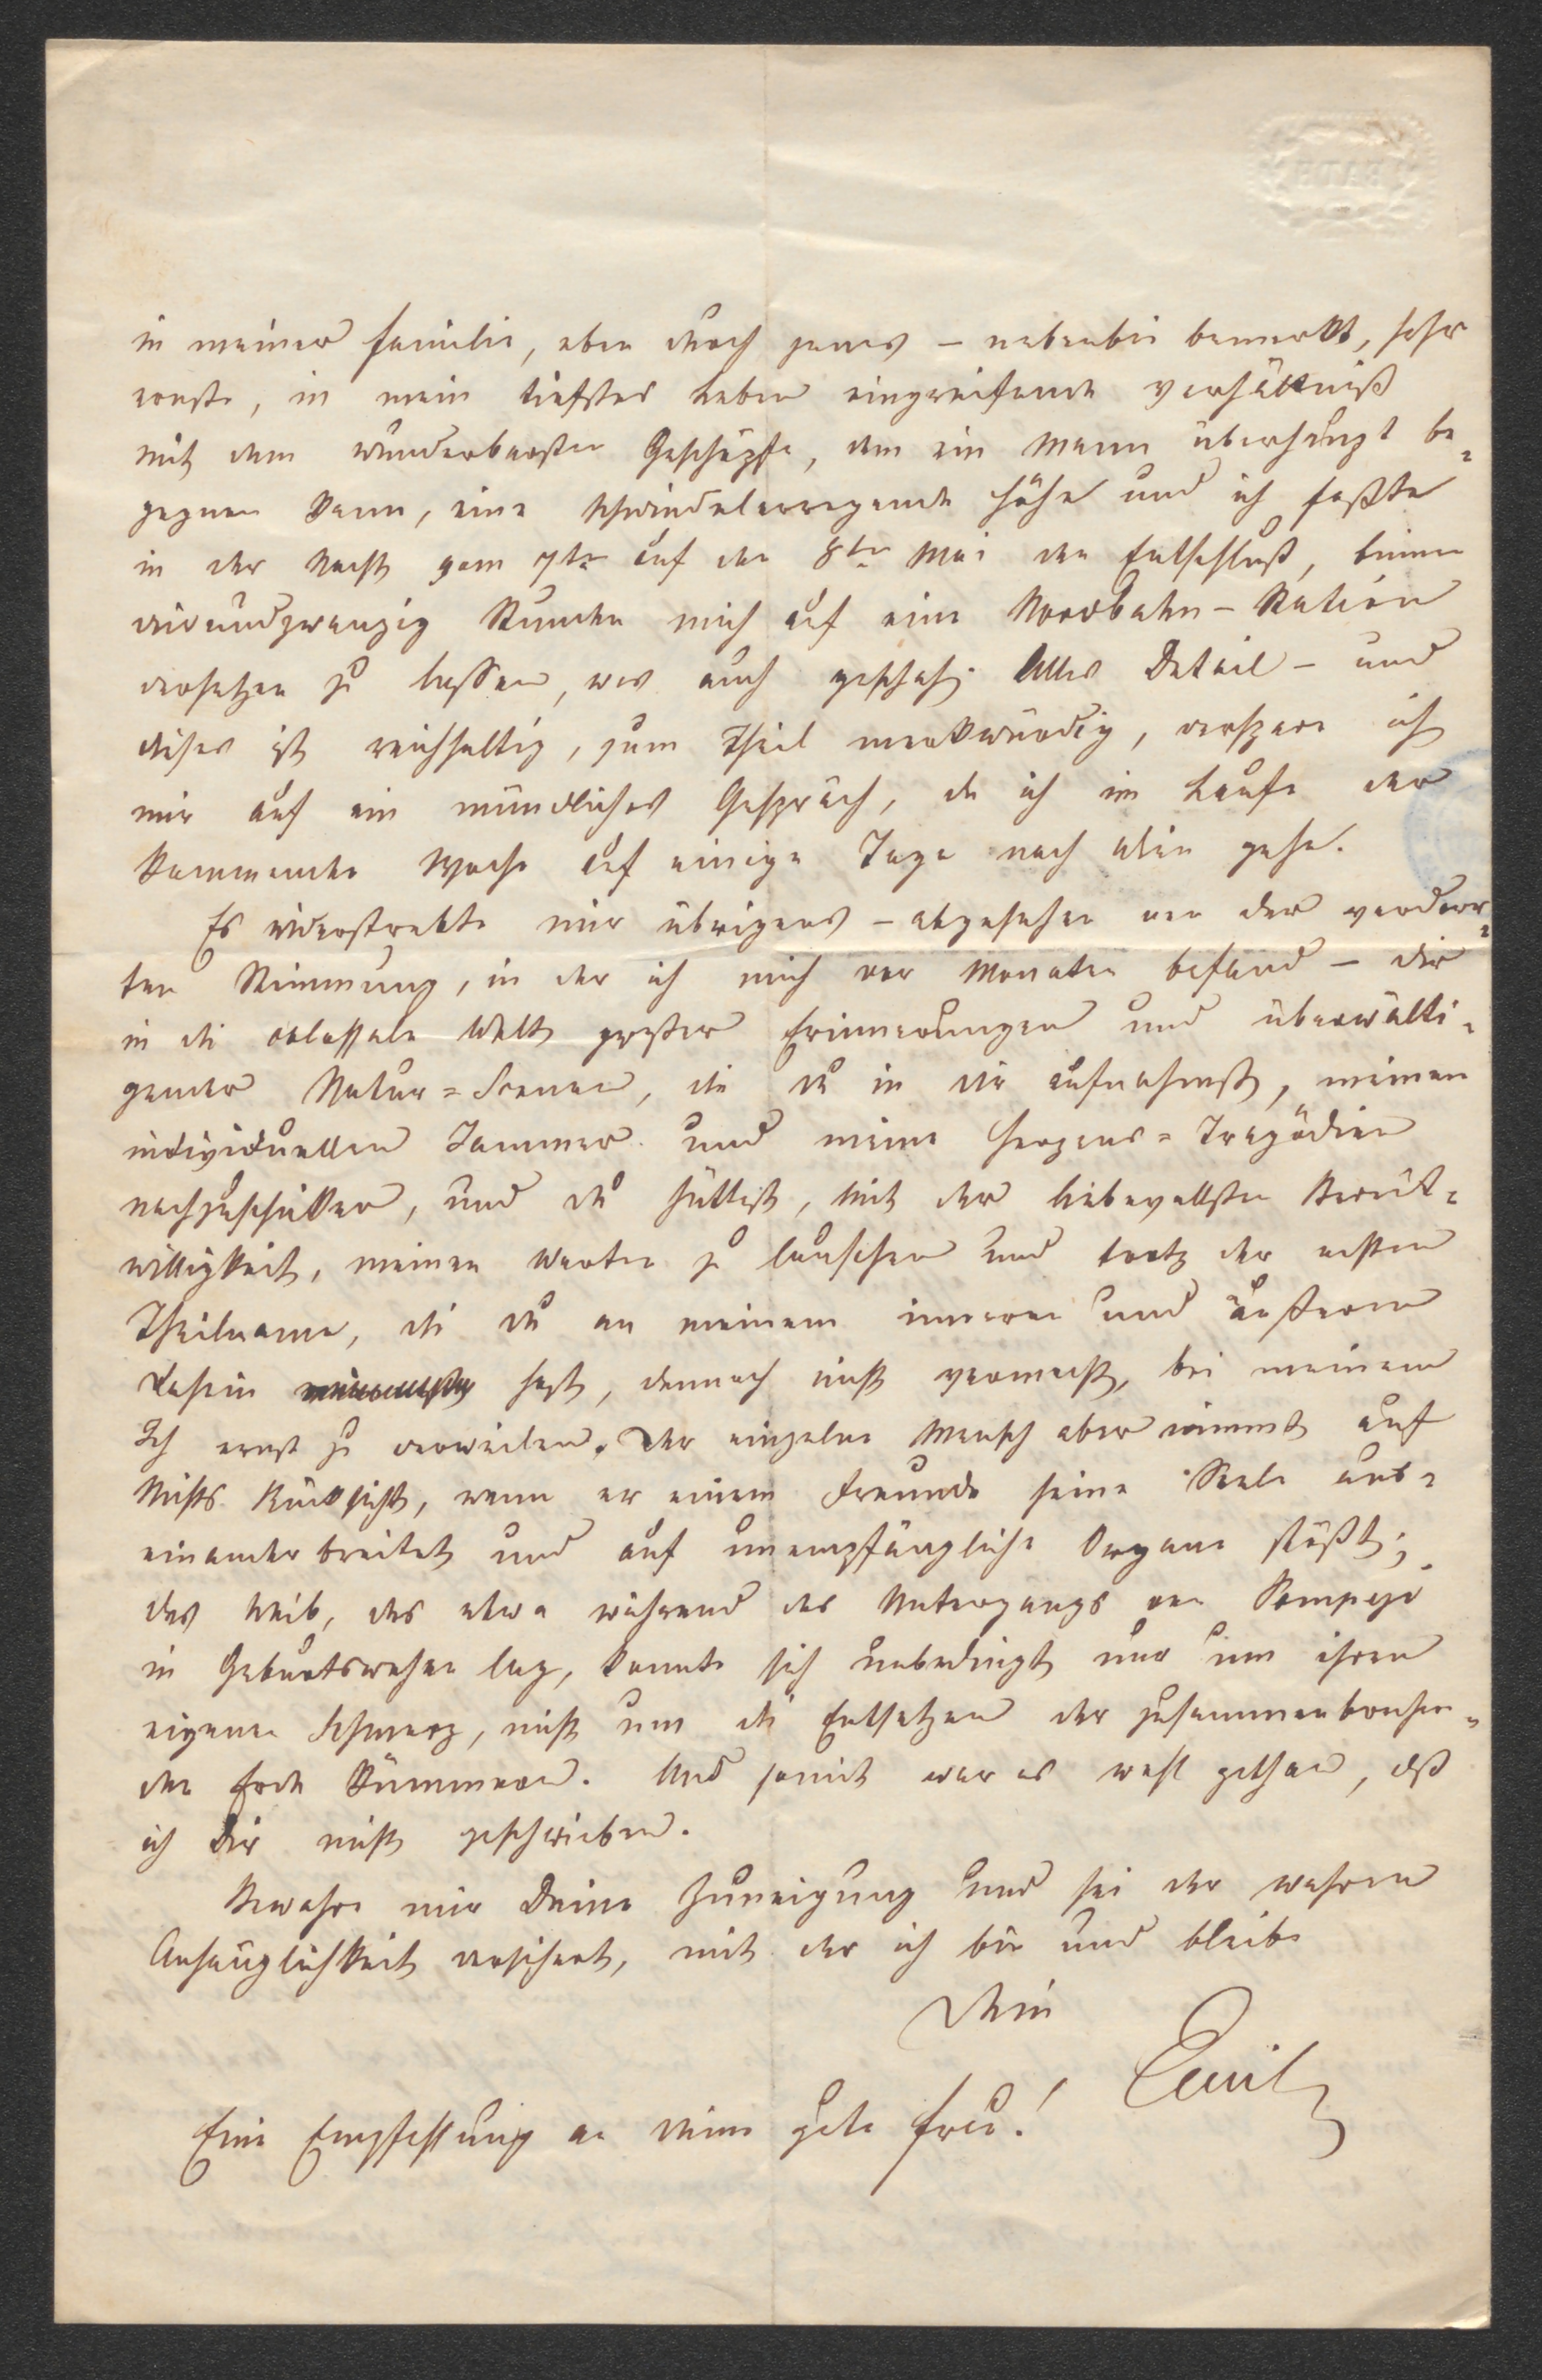 in meiner Familie, eben durch jenes – nebenbei bemerkt, sehr
ernste, in mein tiefstes Leben eingreifende Verhältniß
mit dem wunderbarsten Geschöpfe, dem ein Mann überhaupt be=
gegnen kann, eine schwindelerregende Höhe und ich faßte
in der Nacht vom 7ten auf den 8ten Mai den Entschluß, binnen
vierundzwanzig Stunden mich auf eine Nordbahn-Station
versetzen zu lassen, was auch geschah. Alles Detail – und
dises ist reichhaltig, zum Theil merkwürdig, verspare ich
mir auf ein mündliches Gespräch, da ich im Laufe der
kommenden Woche auf einige Tage nach Wien gehe.
Es widerstrebte mir übrigens – abgesehen von der verdorr=
ten Stimmung, in der ich mich vor Monaten befand – Dir
in die colossale Welt großer Erinnerungen und überwälti=
gender Natur=Scenen, die Du in Dir aufnahmst, meinen
individuellen Jammer und meine Herzens=Tragödien
nachzuschicken, und Du hättest, mit der liebevollsten Bereit=
willigkeit, meinen Worten zu lauschen und trotz der ersten
Theilname, die Du an meinem inneren und äußeren
Dasein hast, dennoch nicht vermocht, bei meinem
Ich ernst zu verweilen. Der einzelne Mensch aber nimmt auf
Nichts Rücksicht, wenn er einem Freunde seine Seele aus=
einander breitet und auf unempfängliche Organe stößt;
das Weib, das etwa während des Untergangs von Pompeji
in Geburtswehen lag, konnte sich unbedingt nur um ihren
eigenen Schmerz, nicht um die Entsetzen der zusammenbrechen=
den Erde kümmern. Und somit war es wohl gethan, daß
ich Dir nicht geschrieben.
Bewahre mir Deine Zuneigung und sei der wahren
Anhänglichkeit versichert, mit der ich bin und bleibe
Dein
Emil
Eine Empfehlung an Deine gute Frau!